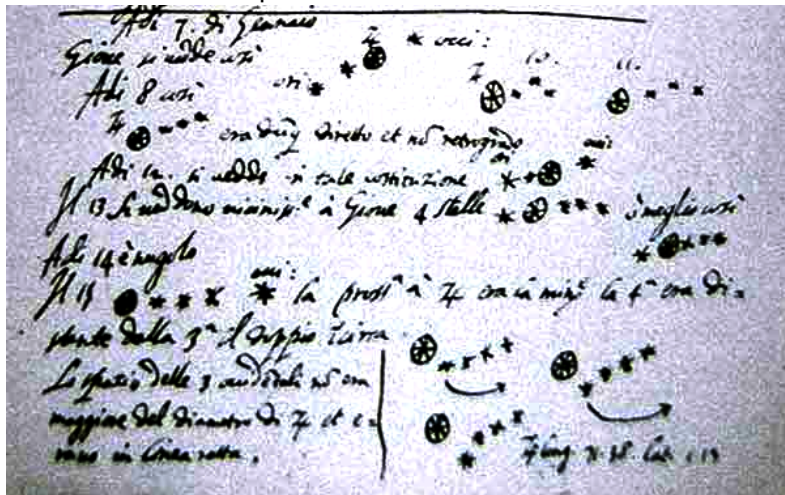 Adi 7. di Gennaio
Giove si vedde così
♃ * occi:
ori
Adi 8 così
♃ 10. 11.
♃ era dunq diretto et nõ retrogrado
ori occi
Adi 12. si vedde in tale costituzione
Il 13 si veddono vicinissᵉ à Giove 4 stelle è meglio così
Adi 14 è nugolo
occi:
Il 15 la prossᵃ à ♃ era la minᵉ la 4ᵃ era di=
stante dalla 3ᵃ il doppio circa
Lo spazio delle 3 occidẽtali nõ era
maggiore del diametro di ♃ et e=
rano in linea retta.
♃ long. 71.38. Lat. 1.13